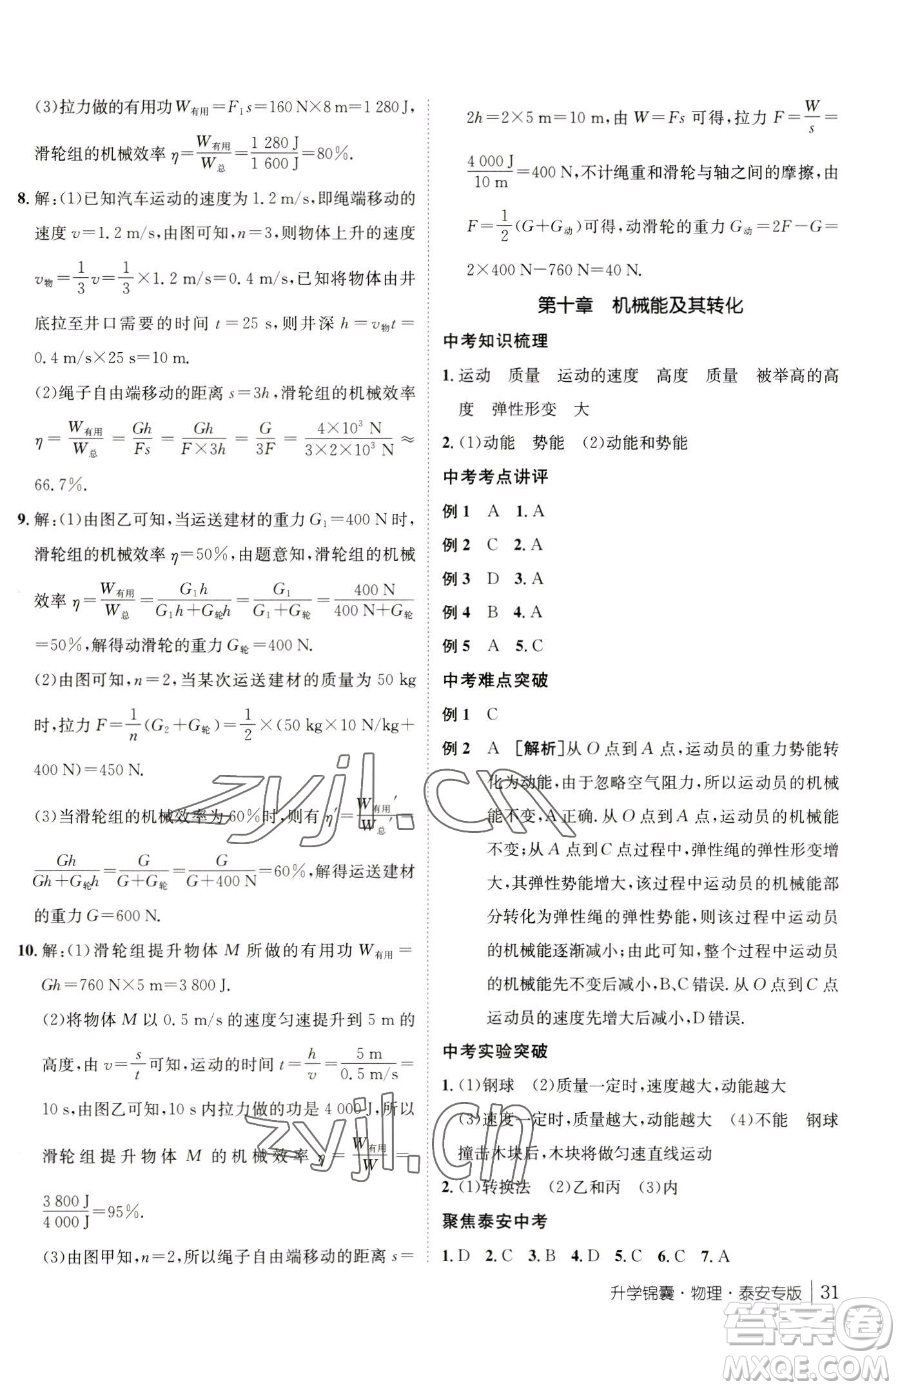 (3)拉力做的有用功W有用=F₁s=160 N×8 m=1 280 J,
滑轮组的机械效率 η=W有用/W总=1 280 J/1 600 J=80%.
8. 解:(1)已知汽车运动的速度为1.2 m/s,即绳端移动的
速度 v=1.2 m/s,由图可知,n=3,则物体上升的速度
v物=1/3v=1/3×1.2 m/s=0.4 m/s,已知将物体由井
底拉至井口需要的时间 t=25 s,则井深 h=v物t=
0.4 m/s×25 s=10 m.
(2)绳子自由端移动的距离 s=3h,滑轮组的机械效率
η=W有用/W总=Gh/Fs=Gh/F×3h=G/3F=4×10³ N/3×2×10³ N≈
66.7%.
9. 解:(1)由图乙可知,当运送建材的重力 G₁=400 N时,
滑轮组的机械效率 η=50%,由题意知,滑轮组的机械
效率 η=W有用/W总=G₁h/G₁h+G轮h=G₁/G₁+G轮=400 N/400 N+G轮
=50%,解得动滑轮的重力 G轮=400 N.
(2)由图可知,n=2,当某次运送建材的质量为 50 kg
时,拉力 F=1/n(G₂+G轮)=1/2×(50 kg×10 N/kg+
400 N)=450 N.
(3)当滑轮组的机械效率为60%时,则有 η′=W有用′/W总′=
Gh/Gh+G轮h=G/G+G轮=G/G+400 N=60%,解得运送建材
的重力 G=600 N.
10. 解:(1)滑轮组提升物体 M 所做的有用功 W有用=
Gh=760 N×5 m=3 800 J.
(2)将物体 M 以 0.5 m/s 的速度匀速提升到 5 m 的
高度,由 v=s/t 可知,运动的时间 t=h/v=5 m/0.5 m/s=
10 s,由图乙可知,10 s 拉力做的功是 4 000 J,所以
滑轮组提升物体 M 的机械效率 η=W有用/W=
3 800 J/4 000 J=95%.
(3)由图甲可知,n=2,所以绳子自由端移动的距离 s=
2h=2×5 m=10 m,由 W=Fs 可得,拉力 F=W/s=
4 000 J/10 m=400 N,不计绳重和滑轮与轴之间的摩擦,由
F=1/2(G+G动)可得,动滑轮的重力 G动=2F-G=
2×400 N-760 N=40 N.
第十章 机械能及其转化
中考知识梳理
1. 运动 质量 运动的速度 高度 质量 被举高的高
度 弹性形变 大
2. (1)动能 势能 (2)动能和势能
中考考点讲评
例 1 A 1. A
例 2 C 2. A
例 3 D 3. A
例 4 B 4. A
例 5 A 5. C
中考难点突破
例 1 C
例 2 A [解析]从 O 点到 A 点,运动员的重力势能转
化为动能,由于忽略空气阻力,所以运动员的机械
能不变,A正确.从 A 点到 B 点,运动员的机械能
不变;从 B 点到 C 点过程中,弹性绳的弹性形变增
大,其弹性势能增大,该过程中运动员的机械能部
分转化为弹性绳的弹性势能,则该过程中运动员
的机械能逐渐减小;由此可知,整个过程中运动员
的机械能先不变后减小,B、C错误.从 O 点到 C 点
运动员的速度先增大后减小,D错误.
中考实验突破
1. (1)钢球 (2)质量一定时,速度越大,动能越大
(3)速度一定时,质量越大,动能越大 (4)不能 钢球
撞击木块后,木块做匀速直线运动
2. (1)转换法 (2)乙和丙 (3)内
聚焦泰安中考
1. D 2. C 3. B 4. D 5. C 6. C 7. A
升学锦囊·物理·泰安专版 31
zyjl.cn
zyjl.cn
答案圈
MXQE.COM